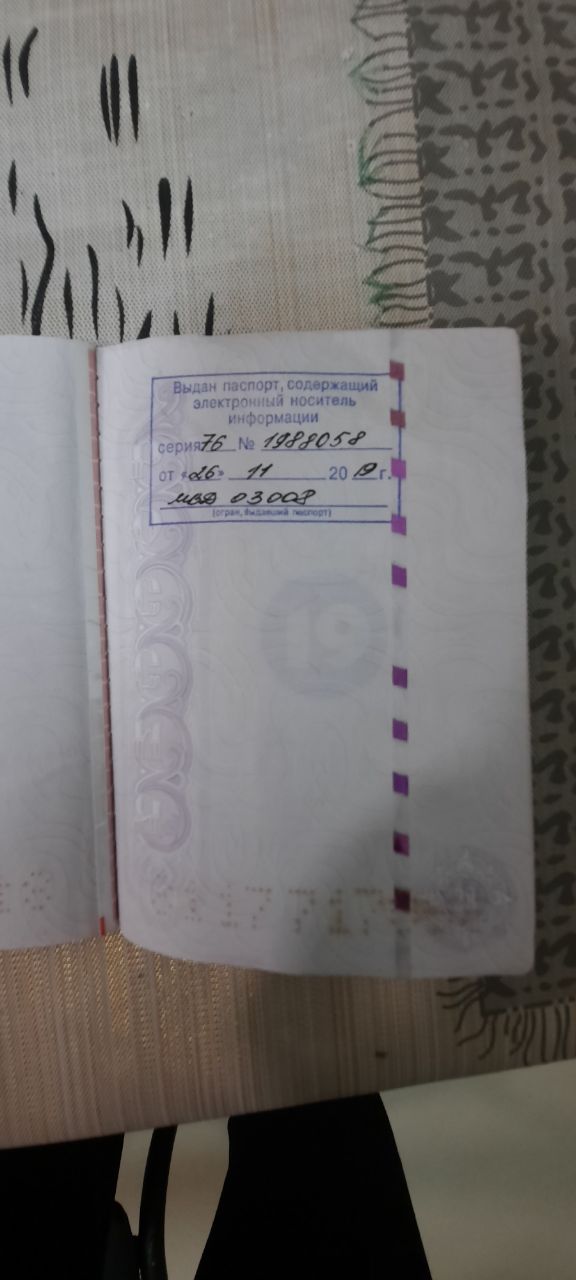 Выдан паспорт, содержащий
электронный носитель
информации
серия 76 № 1988058
от «26» 11 2019 г.
МВД 03008
(орган, выдавший паспорт)
19